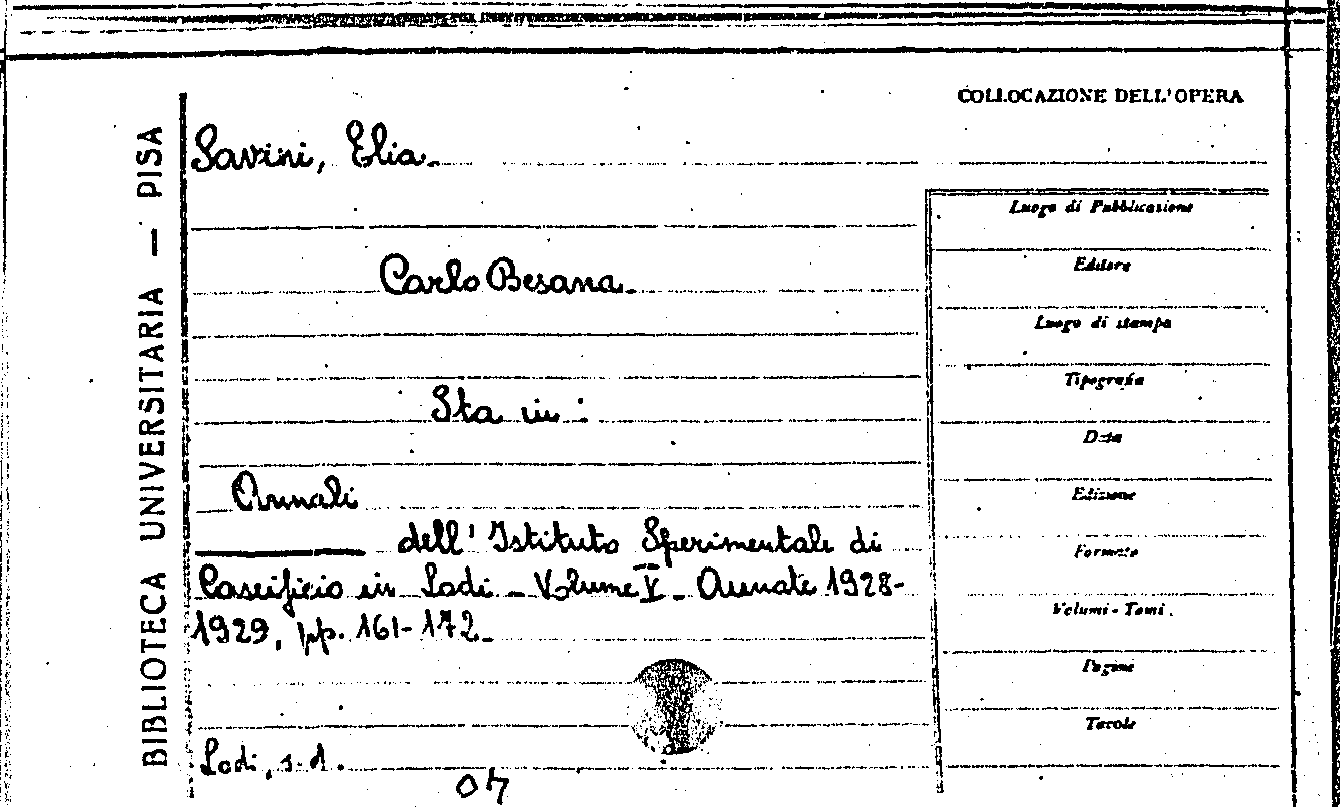 COLLOCAZIONE DELL'OPERA
BIBLIOTECA UNIVERSITARIA — PISA
Savini, Elia.
Carlo Besana.
Sta in:
Annali
dell'Istituto Sperimentale di
Caseificio in Lodi - Volume V - Annate 1928-
1929, pp. 161-172.
Lodi, s.d.
Luogo di Pubblicazione
Editore
Luogo di stampa
Tipografia
Data
Edizione
Formato
Volumi - Tomi.
Pagine
Tavole